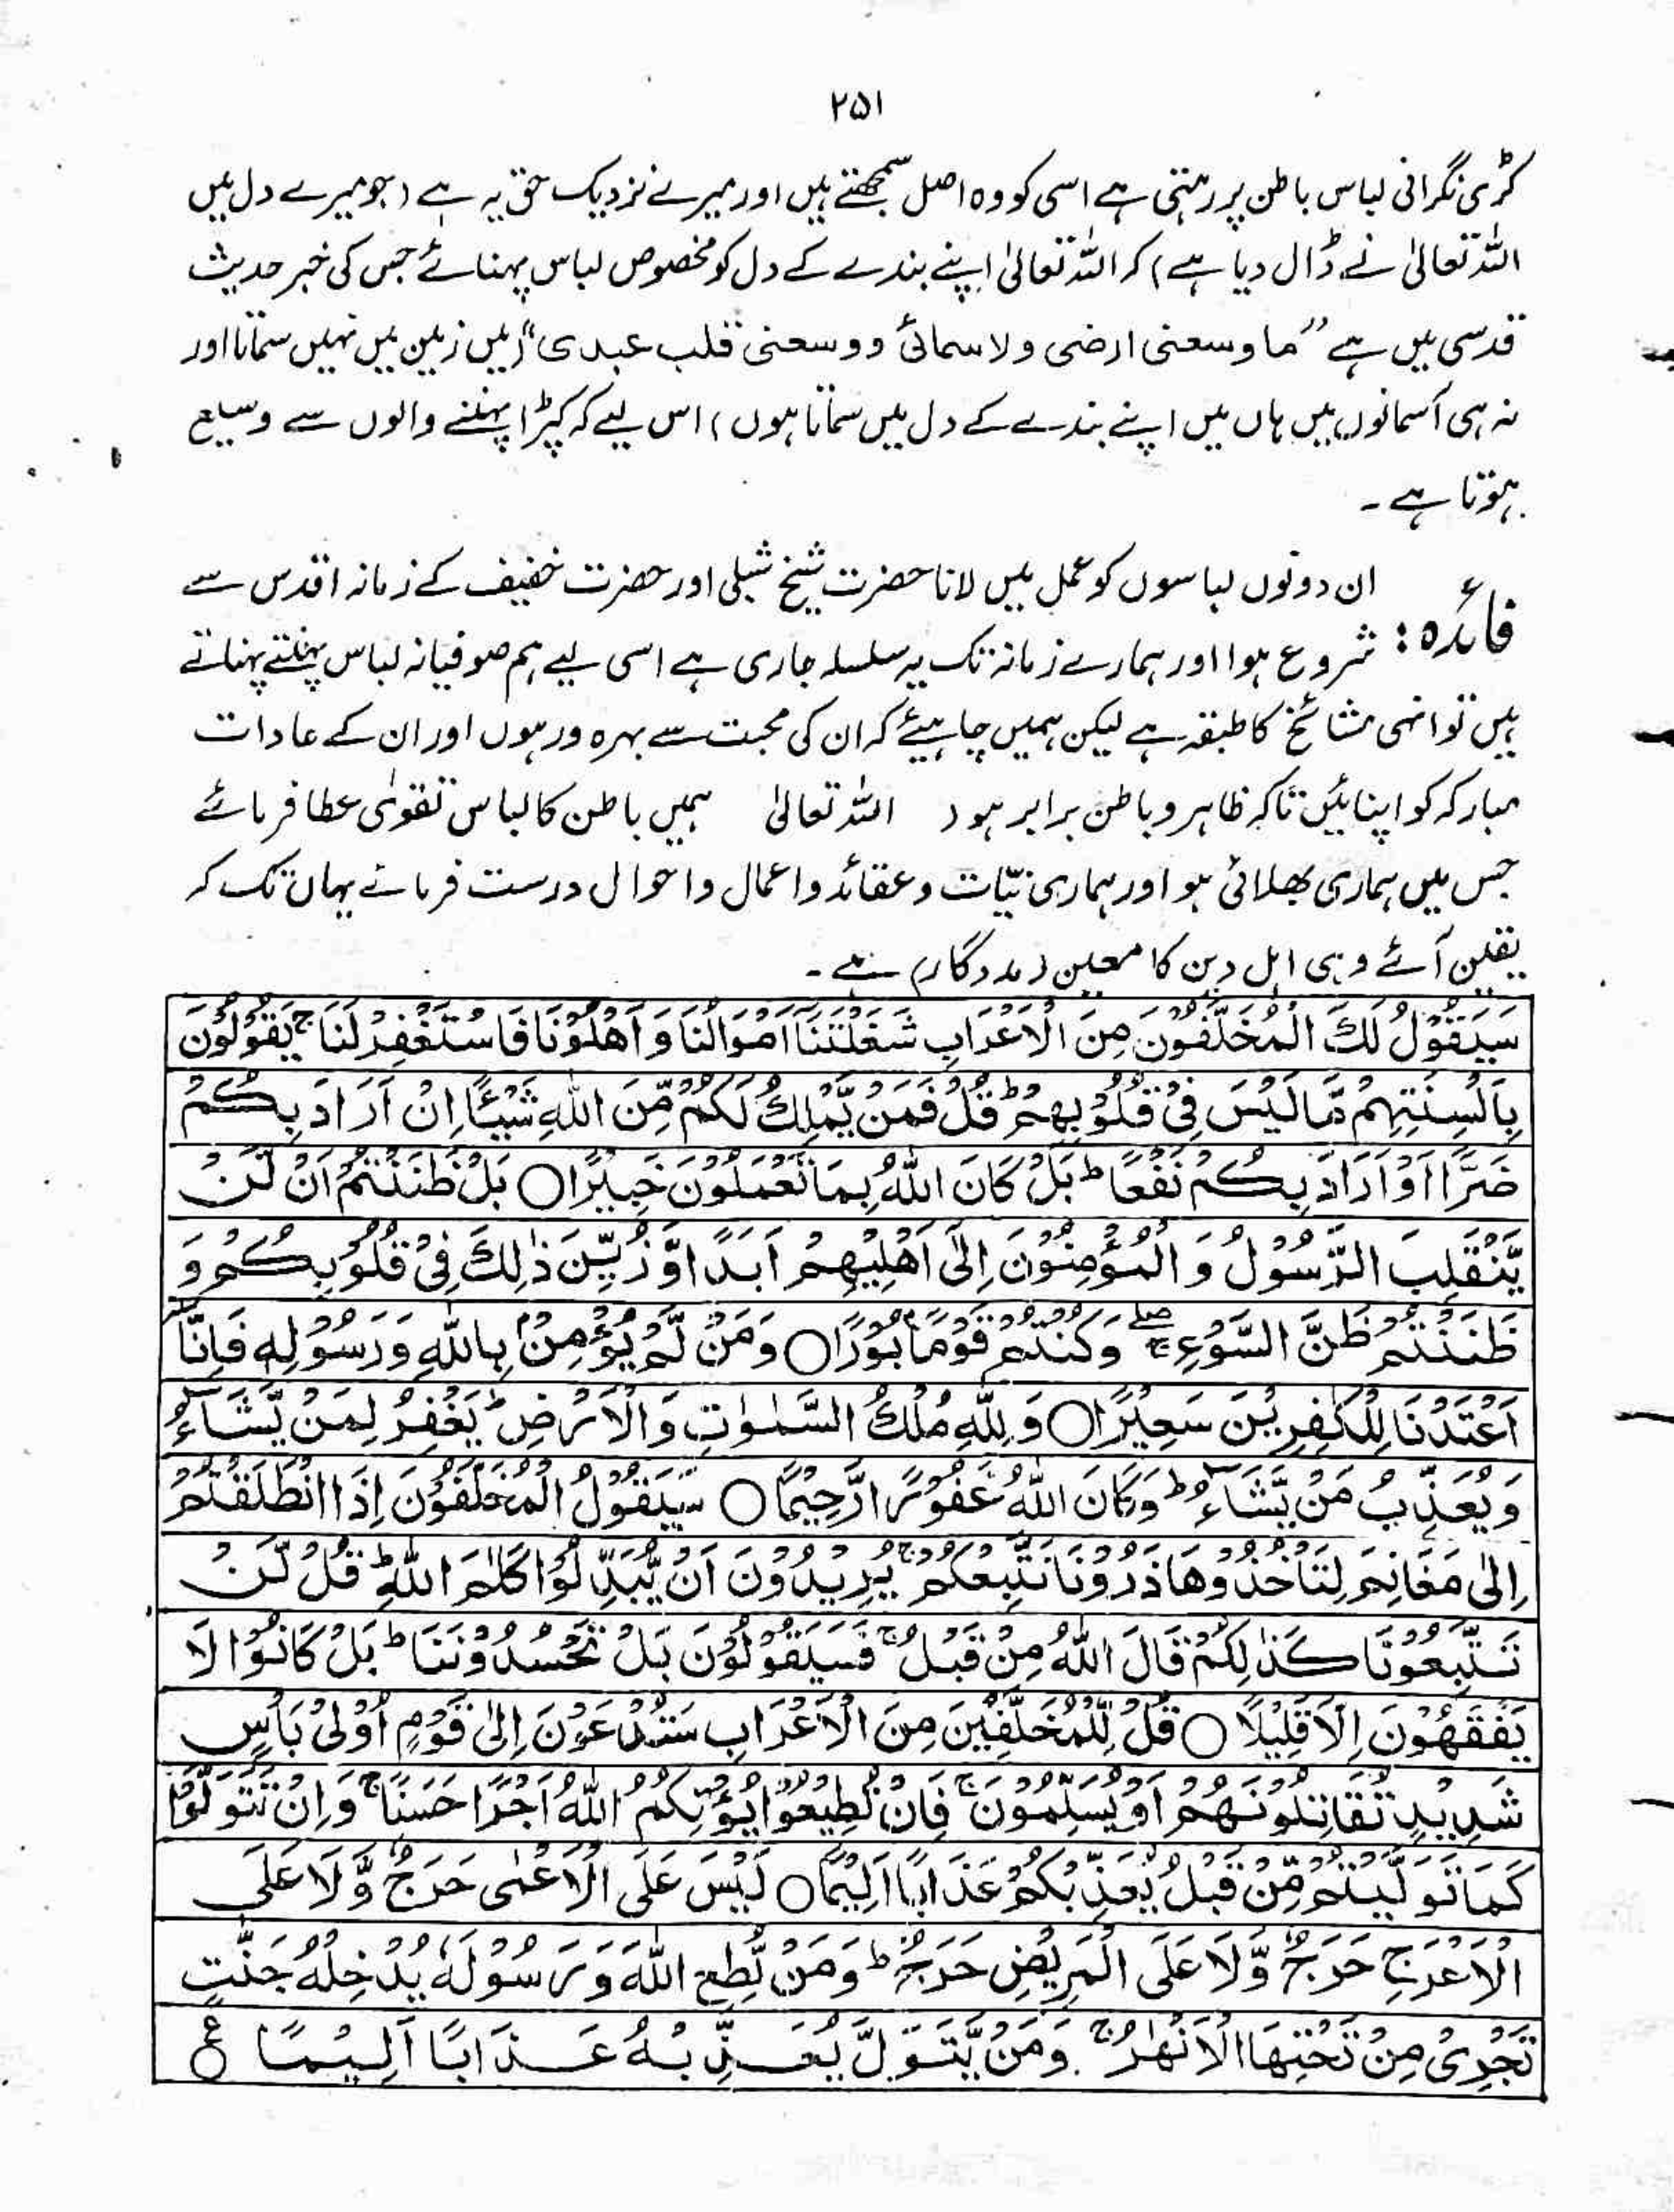 ۲۵۱
کڑی نگرانی لباس باطن پر رہتی ہے اسی کو وہ اصل سمجھتے ہیں اور میرے نزدیک حق یہ ہے (جو میرے دل میں
اللہ تعالیٰ نے ڈال دیا ہے) کہ اللہ تعالیٰ اپنے بندے کے دل کو مخصوص لباس پہنائے جس کی خبر حدیث
قدسی میں ہے "ما وسعنی ارضی ولا سمائی ووسعنی قلب عبدی" (میں زمین میں نہیں سماتا اور
نہ ہی آسمانوں میں ہاں میں اپنے بندے کے دل میں سماتا ہوں) اس لیے کہ کپڑا پہننے والوں سے وسیع
ہوتا ہے ۔
فائدہ : ان دونوں لباسوں کو عمل میں لانا حضرت شیخ شبلی اور حضرت خفیف کے زمانہ اقدس سے
شروع ہوا اور ہمارے زمانہ تک یہ سلسلہ جاری ہے اسی لیے ہم صوفیانہ لباس پہنتے پہناتے
ہیں تو انہی مشائخ کا طبقہ ہے لیکن ہمیں چاہیئے کہ ان کی محبت سے بہرہ ور ہوں اور ان کے عادات
مبارکہ کو اپنائیں تاکہ ظاہر و باطن برابر ہو ( اللہ تعالیٰ ہمیں باطن کا لباس تقویٰ عطا فرمائے
جس میں ہماری بھلائی ہو اور ہماری نیّات و عقائد و اعمال و احوال درست فرمائے یہاں تک کہ
یقین آئے وہی اہل دین کا معین (مددگار) ہے ۔
سَيَقُوْلُ لَكَ الْمُخَلَّفُوْنَ مِنَ الْاَعْرَابِ شَغَلَتْنَاۤ اَمْوَالُنَا وَ اَهْلُوْنَا فَاسْتَغْفِرْ لَنَا ۚ يَقُوْلُوْنَ
بِاَلْسِنَتِهِمْ مَّا لَيْسَ فِيْ قُلُوْبِهِمْ ؕ قُلْ فَمَنْ يَّمْلِكُ لَكُمْ مِّنَ اللّٰهِ شَيْـًٔا اِنْ اَرَادَ بِكُمْ
ضَرًّا اَوْ اَرَادَ بِكُمْ نَفْعًا ؕ بَلْ كَانَ اللّٰهُ بِمَا تَعْمَلُوْنَ خَبِيْرًا ○ بَلْ ظَنَنْتُمْ اَنْ لَّنْ
يَّنْقَلِبَ الرَّسُوْلُ وَ الْمُؤْمِنُوْنَ اِلٰۤى اَهْلِيْهِمْ اَبَدًا وَّ زُيِّنَ ذٰلِكَ فِيْ قُلُوْبِكُمْ وَ
ظَنَنْتُمْ ظَنَّ السَّوْءِ ۖۚ وَ كُنْتُمْ قَوْمًۢا بُوْرًا ○ وَ مَنْ لَّمْ يُؤْمِنْۢ بِاللّٰهِ وَ رَسُوْلِهٖ فَاِنَّاۤ
اَعْتَدْنَا لِلْكٰفِرِيْنَ سَعِيْرًا ○ وَ لِلّٰهِ مُلْكُ السَّمٰوٰتِ وَ الْاَرْضِ ؕ يَغْفِرُ لِمَنْ يَّشَآءُ
وَ يُعَذِّبُ مَنْ يَّشَآءُ ؕ وَ كَانَ اللّٰهُ غَفُوْرًا رَّحِيْمًا ○ سَيَقُوْلُ الْمُخَلَّفُوْنَ اِذَا انْطَلَقْتُمْ
اِلٰى مَغَانِمَ لِتَاْخُذُوْهَا ذَرُوْنَا نَتَّبِعْكُمْ ۚ يُرِيْدُوْنَ اَنْ يُّبَدِّلُوْا كَلٰمَ اللّٰهِ ؕ قُلْ لَّنْ
تَتَّبِعُوْنَا كَذٰلِكُمْ قَالَ اللّٰهُ مِنْ قَبْلُ ۚ فَسَيَقُوْلُوْنَ بَلْ تَحْسُدُوْنَنَا ؕ بَلْ كَانُوْا لَا
يَفْقَهُوْنَ اِلَّا قَلِيْلًا ○ قُلْ لِّلْمُخَلَّفِيْنَ مِنَ الْاَعْرَابِ سَتُدْعَوْنَ اِلٰى قَوْمٍ اُولِيْ بَاْسٍ
شَدِيْدٍ تُقَاتِلُوْنَهُمْ اَوْ يُسْلِمُوْنَ ۚ فَاِنْ تُطِيْعُوْا يُؤْتِكُمُ اللّٰهُ اَجْرًا حَسَنًا ۚ وَ اِنْ تَتَوَلَّوْا
كَمَا تَوَلَّيْتُمْ مِّنْ قَبْلُ يُعَذِّبْكُمْ عَذَابًا اَلِيْمًا ○ لَيْسَ عَلَى الْاَعْمٰى حَرَجٌ وَّ لَا عَلَى
الْاَعْرَجِ حَرَجٌ وَّ لَا عَلَى الْمَرِيْضِ حَرَجٌ ؕ وَ مَنْ يُّطِعِ اللّٰهَ وَ رَسُوْلَهٗ يُدْخِلْهُ جَنّٰتٍ
تَجْرِيْ مِنْ تَحْتِهَا الْاَنْهٰرُ ۚ وَ مَنْ يَّتَوَلَّ يُعَذِّبْهُ عَذَابًا اَلِيْمًا ○ ع